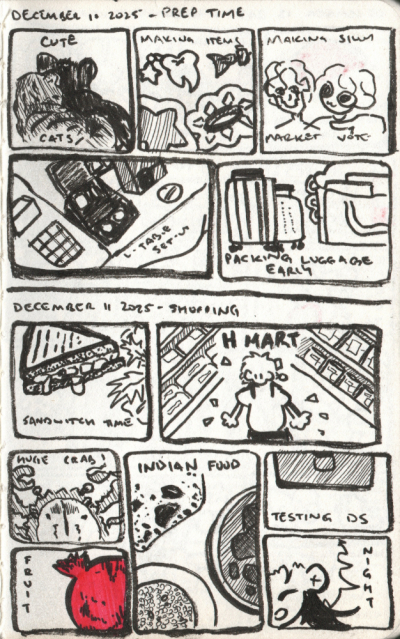 DECEMBER 10 2025 - PREP TIME
CUTE
CATS!
MAKING ITEMS
MAKING SILLY
MARKET VOTE
L-TABLE
SET-UP
PACKING LUGGAGE
EARLY
DECEMBER 11 2025 - SHOPPING
SANDWITCH TIME
H MART
HUGE CRAB!
INDIAN FOOD
TESTING DS
FRUIT
NIGHT